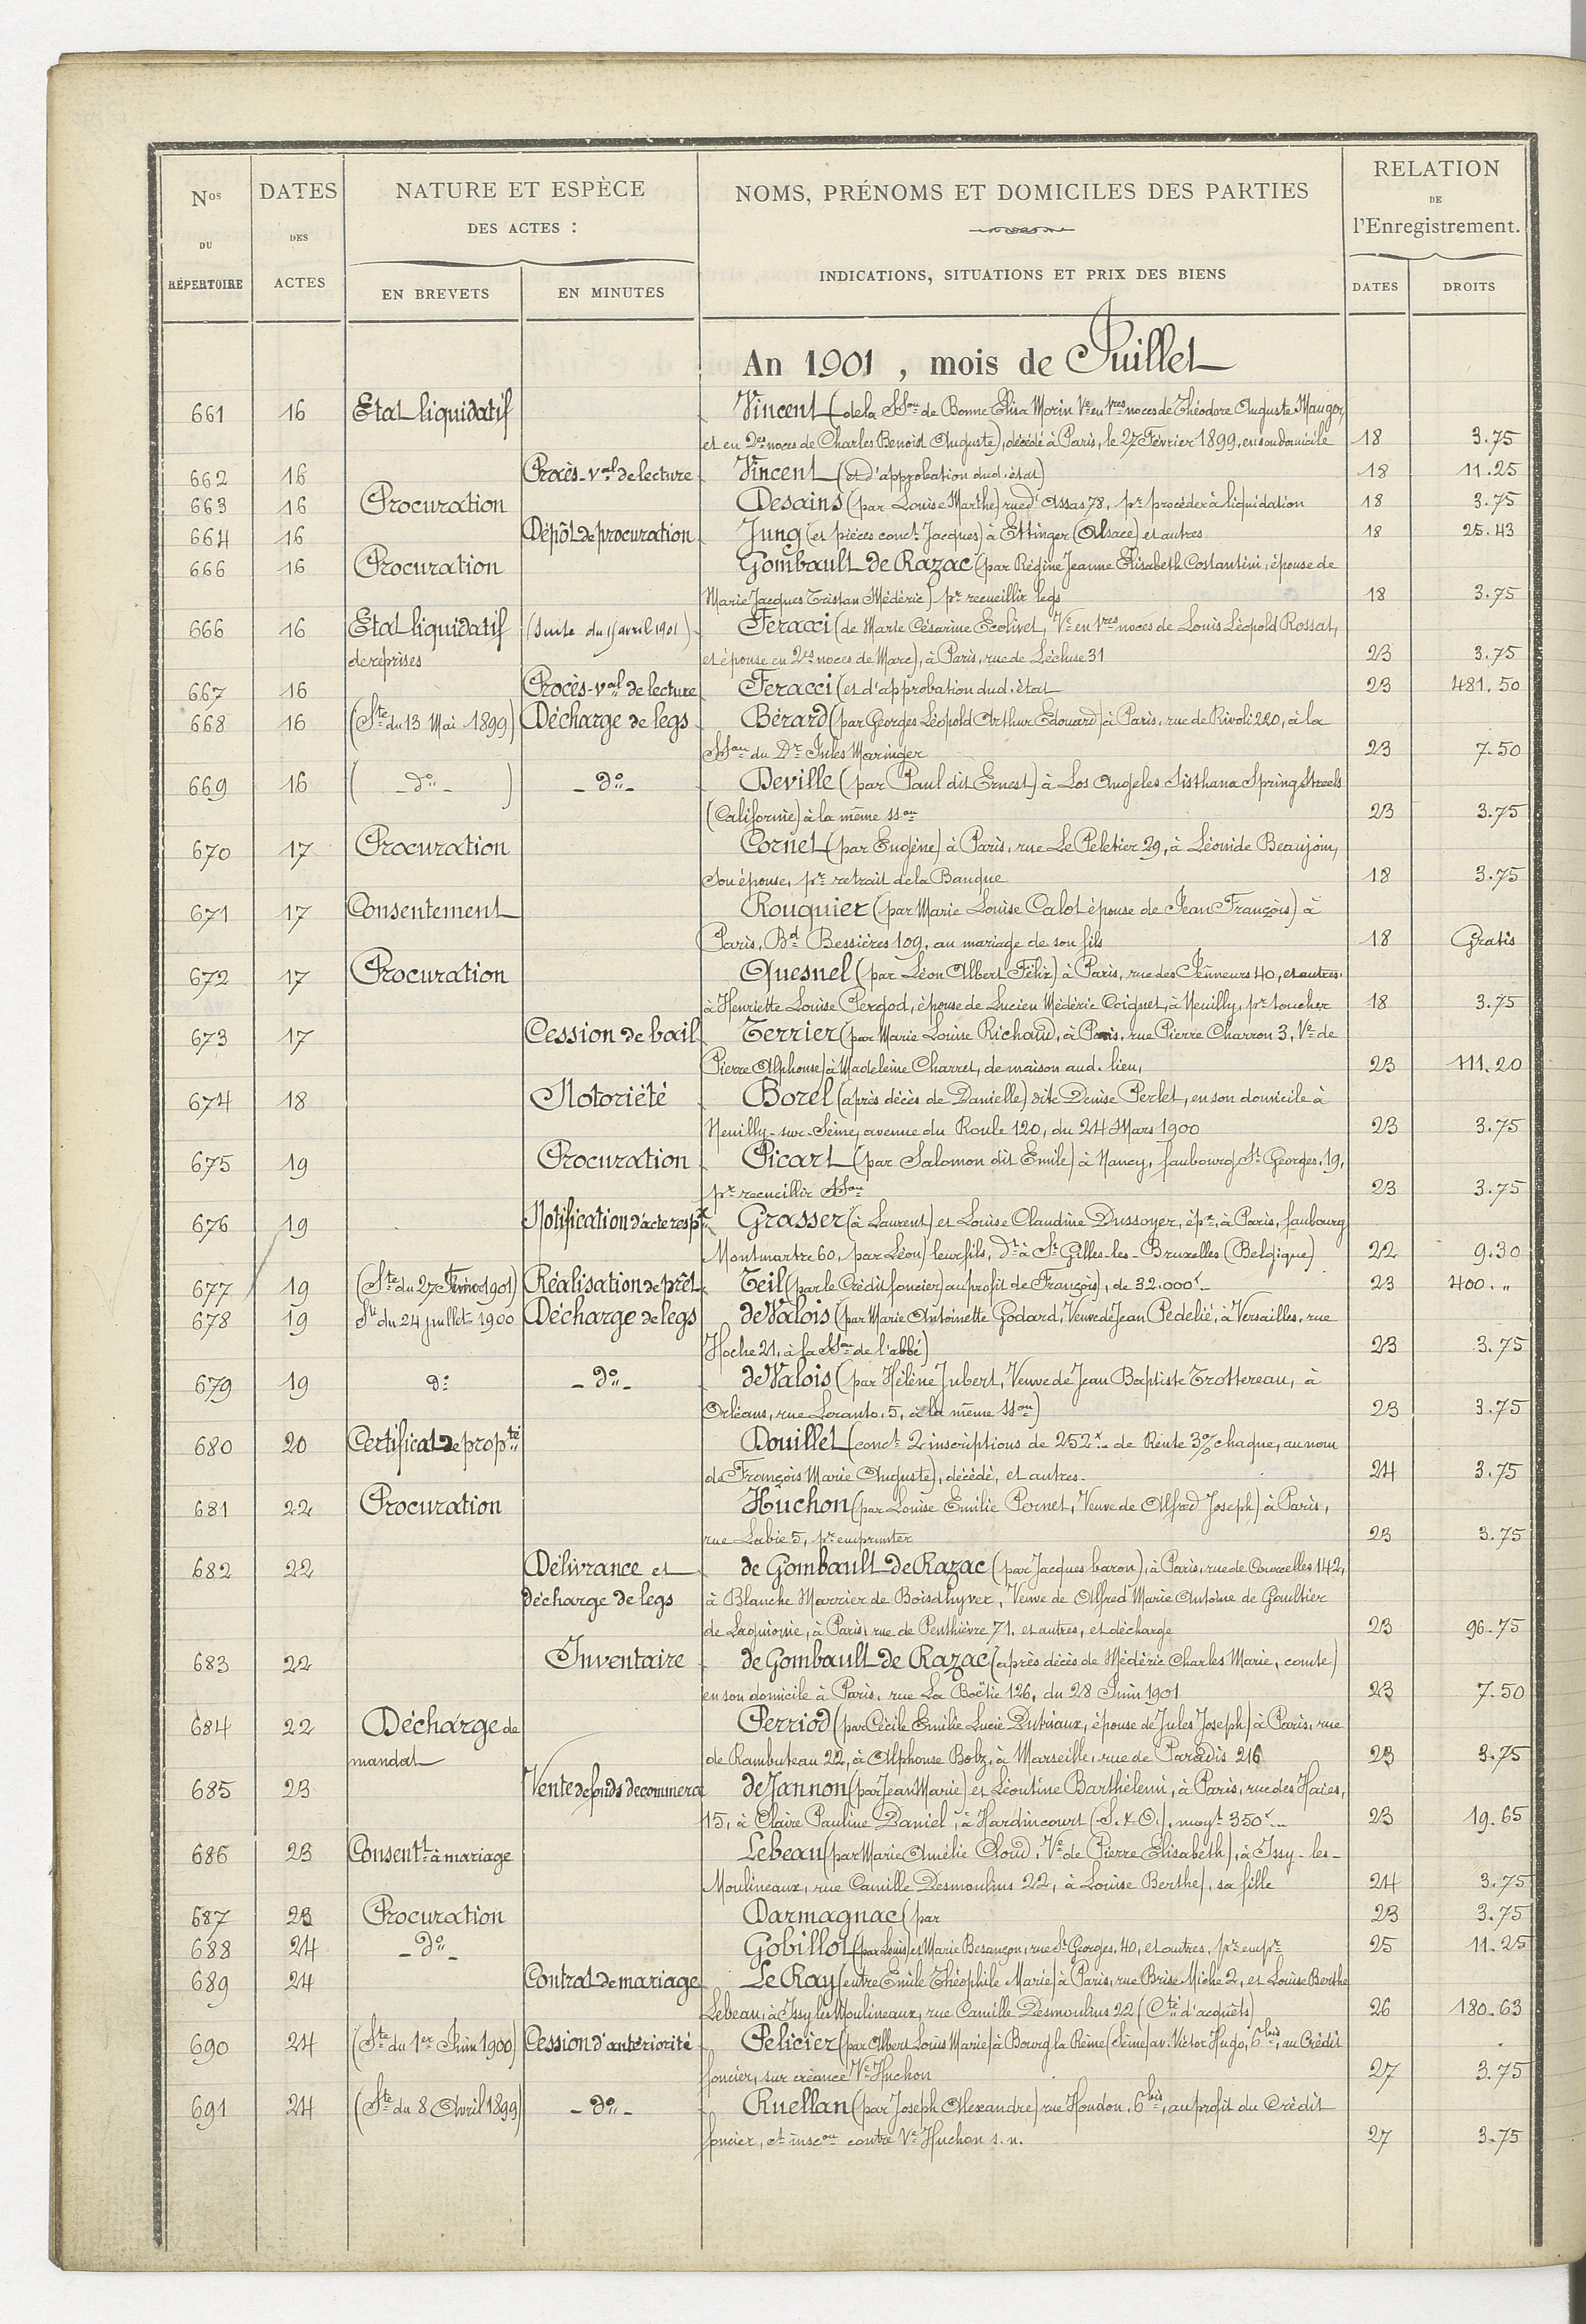 Nos DU RÉPERTOIRE
DATES DES ACTES
NATURE ET ESPÈCE
DES ACTES :
EN BREVETS
EN MINUTES
NOMS, PRÉNOMS ET DOMICILES DES PARTIES
INDICATIONS, SITUATIONS ET PRIX DES BIENS
RELATION
DE
l'Enregistrement.
DATES
DROITS
An 1901, mois de Juillet
661 16 Etat liquidatif Vincent (de la SSon de Bonne Elisa Morin Ve en 1res noces de Théodore Auguste Mauger,
et en 2es noces de Charles Benoist Auguste), décédé à Paris, le 27 Février 1899, en son domicile 18 3.75
662 16 Procès-val de lecture Vincent (et d'approbation dud. état) 18 11.25
663 16 Procuration Desains (par Louise Marthe) rue d'Assas 78, pr procéder à liquidation 18 3.75
664 16 Dépôt de procuration Jung (et pièces conct Jacques) à Ettinger (Alsace) et autres 18 25.43
666 16 Procuration Gombault de Razac (par Régine Jeanne Elisabeth Costantini, épouse de
Marie Jacques Tristan Médéric) pr recueillir legs 18 3.75
666 16 Etat liquidatif (Suite du 15 avril 1901) Feracci (de Marie Césarine Ecolivet, Ve en 1res noces de Louis Léopold Rossat,
de reprises et épouse en 2es noces de Marc), à Paris, rue de Lécluse 31 23 3.75
667 16 Procès-val de lecture Feracci (et d'approbation dud. état 23 481.50
668 16 (Ste du 13 Mai 1899) Décharge de legs Bérard (par Georges Léopold Arthur Edouard) à Paris, rue de Rivoli 220, à la
SSon du Dr Jules Maringer 23 7.50
669 16 (-do-) -do- Deville (par Paul dit Ernest) à Los Angeles Sisthana Spring Streels
(Californie) à la même SSon 23 3.75
670 17 Procuration Cornet (par Eugène) à Paris, rue Le Peletier 29, à Léonide Beaujoin,
son épouse, pr retrait de la Banque 18 3.75
671 17 Consentement Rouquier (par Marie Louise Calot épouse de Jean François) à
Paris, Bd Bessières 109, au mariage de son fils 18 Gratis
672 17 Procuration Quesnel (par Léon Albert Félix) à Paris, rue des Jeûneurs 40, et autres,
à Henriette Louise Pergod, épouse de Lucien Médéric Coignet, à Neuilly, pr toucher 18 3.75
673 17 Cession de bail Terrier (par Marie Louise Richaud, à Paris, rue Pierre Charron 3, Ve de
Pierre Alphonse) à Madeleine Charret, de maison aud. lieu, 23 111.20
674 18 Notoriété Borel (après décès de Danielle) dite Denise Perlet, en son domicile à
Neuilly-sur-Seine, avenue du Roule 120, du 24 Mars 1900 23 3.75
675 19 Procuration Picart (par Salomon dit Emile) à Nancy, faubourg St Georges, 19,
pr recueillir SSon 23 3.75
676 19 Notification d'acte respx Grasser (à Laurent) et Louise Claudine Dussoyer, épx, à Paris, faubourg
Montmartre 60, par Léon) leur fils, dt à St Gilles-les-Bruxelles (Belgique) 22 9.30
677 19 (Ste du 27 Février 1901) Réalisation de prêt Teil (par le Crédit foncier) au profit de François), de 32.000f 23 400. "
678 19 Ste du 24 juillet 1900 Décharge de legs de Valois (par Marie Antoinette Godard, Veuve de Jean Pedelié, à Versailles, rue
Hoche 21, à la SSon de l'abbé) 23 3.75
679 19 do -do- de Valois (par Hélène Jubert, Veuve de Jean Baptiste Trottereau, à
Orléans, rue 5, à la même SSon) 23 3.75
680 20 Certificat de propté Douillet (conct 2 inscriptions de 252f de Rente 3% chaque, au nom
de François Marie Auguste), décédé, et autres. 24 3.75
681 22 Procuration Huchon (par Louise Emilie Pernet, Veuve de Alfred Joseph) à Paris,
rue Labie 5, pr emprunter 23 3.75
682 22 Délivrance et de Gombault de Razac (par Jacques baron), à Paris, rue de Courcelles 142,
décharge de legs à Blanche Marrier de Boisdhyver, Veuve de Alfred Marie Antoine de Gaultier
de Laguionie, à Paris, rue de Penthièvre 71, et autres, et décharge 23 96.75
683 22 Inventaire de Gombault de Razac (après décès de Médéric Charles Marie, comte)
en son domicile à Paris, rue La Boëtie 126, du 28 Juin 1901 23 7.50
684 22 Décharge de Perriod (par Cécile Emilie Lucie Dutriaux, épouse de Jules Joseph) à Paris, rue
mandat de Rambuteau 22, à Alphonse Bolz, à Marseille, rue de Paradis 216 23 3.75
685 23 Vente de fonds de commerce de Jannon (par Jean Marie) et Léontine Barthélemi, à Paris, rue des Haies,
15, à Claire Pauline Daniel, à Hardincourt (S. & O.), moyt 350f 23 19.65
686 23 Consentt à mariage Lebeau (par Marie Amélie Cloud, Ve de Pierre Elisabeth), à Issy-les-
Moulineaux, rue Camille Desmoulins 22, à Louise Berthe), sa fille 24 3.75
687 23 Procuration Darmagnac (par 23 3.75
688 24 -do- Gobillot (par Louis) et Marie Besançon, rue St Georges, 40, et autres, pr empr 25 11.25
689 24 Contrat de mariage Le Ray (entre Emile Théophile Marie) à Paris, rue Brise Miche 2, et Louise Berthe
Lebeau, à Issy les Moulineaux, rue Camille Desmoulins 22 (Cté d'acquêts) 26 180.63
690 24 (Ste du 1er Juin 1900) Cession d'antériorité Pelicier (par Albert Louis Marie) à Bourg la Reine (Seine) av. Victor Hugo, 6bis, au Crédit
foncier, sur créance Ve Huchon 27 3.75
691 24 (Ste du 8 Avril 1899) -do- Ruellan (par Joseph Alexandre) rue Houdon, 6bis, au profit du Crédit
foncier, et inscon contre Ve Huchon s.n. 27 3.75